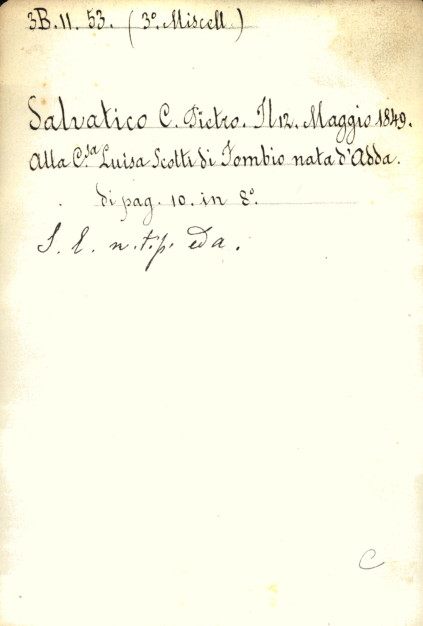 3B. 11. 53. (3º. Miscell.)
Salvatico C. Pietro. Il 12. Maggio 1849.
Alla C.sa Luisa Scotti di Fombio nata d'Adda.
di pag. 10. in 8º.
S. E. n. t. p. ed a.
C